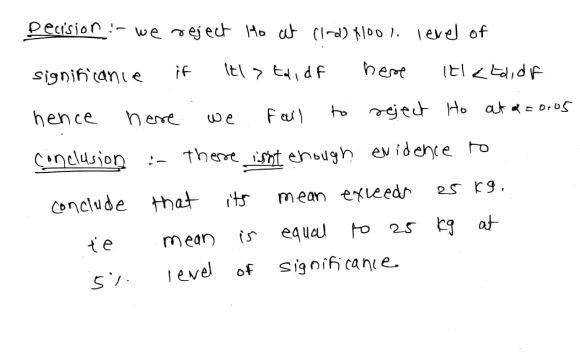 Decision :- we reject Ho at (1-α) *100 %. level of
significance if |t| > tα,df here |t| < tα,df
hence here we Fail to reject Ho at α = 0.05
Conclusion :- There isnt enough evidence to
conclude that its mean exceeds 25 kg.
ie mean is equal to 25 kg at
5%. level of significance